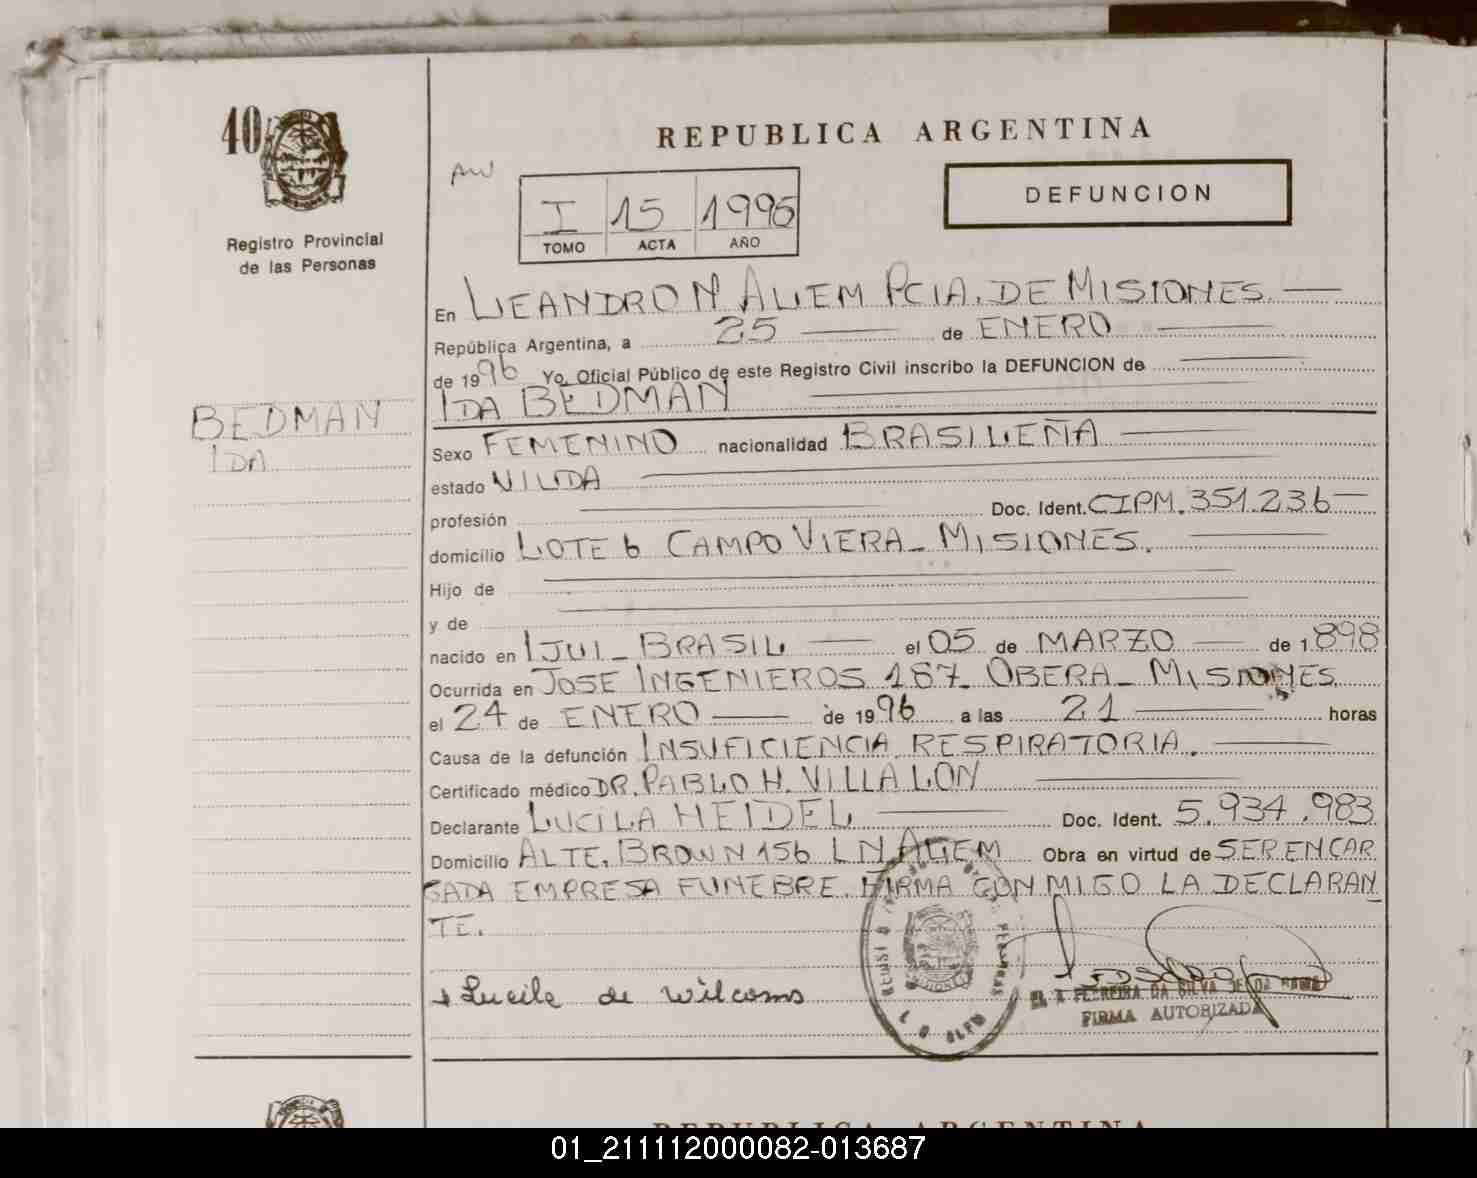 40
Registro Provincial
de las Personas
REPUBLICA ARGENTINA
DEFUNCION
I 15 1996
TOMO ACTA AÑO
En LEANDRO N ALEM PCIA. DE MISIONES
República Argentina, a 25 de ENERO
de 1996 Yo, Oficial Público de este Registro Civil inscribo la DEFUNCION de
IDA BEDMAN
BEDMAN
IDA
Sexo FEMENINO nacionalidad BRASILEÑA
estado VIUDA
profesión Doc. Ident. CIPM. 351.236
domicilio LOTE 6 CAMPO VIERA - MISIONES.
Hijo de
y de
nacido en IJUI - BRASIL el 05 de MARZO de 1.898
Ocurrida en JOSE INGENIEROS 187 - OBERA - MISIONES
el 24 de ENERO de 1996 a las 21 horas
Causa de la defunción INSUFICIENCIA RESPIRATORIA.
Certificado médico DR. PABLO H. VILLALON
Declarante LUCILA HEIDEL Doc. Ident. 5.934.983
Domicilio ALTE. BROWN 156 L N ALEM Obra en virtud de SER ENCAR
GADA EMPRESA FUNEBRE. FIRMA CONMIGO LA DECLARAN
TE.
Lucila de
FERREIRA DA SILVA DE
FIRMA AUTORIZADA
REPUBLICA ARGENTINA
01_211112000082-013687